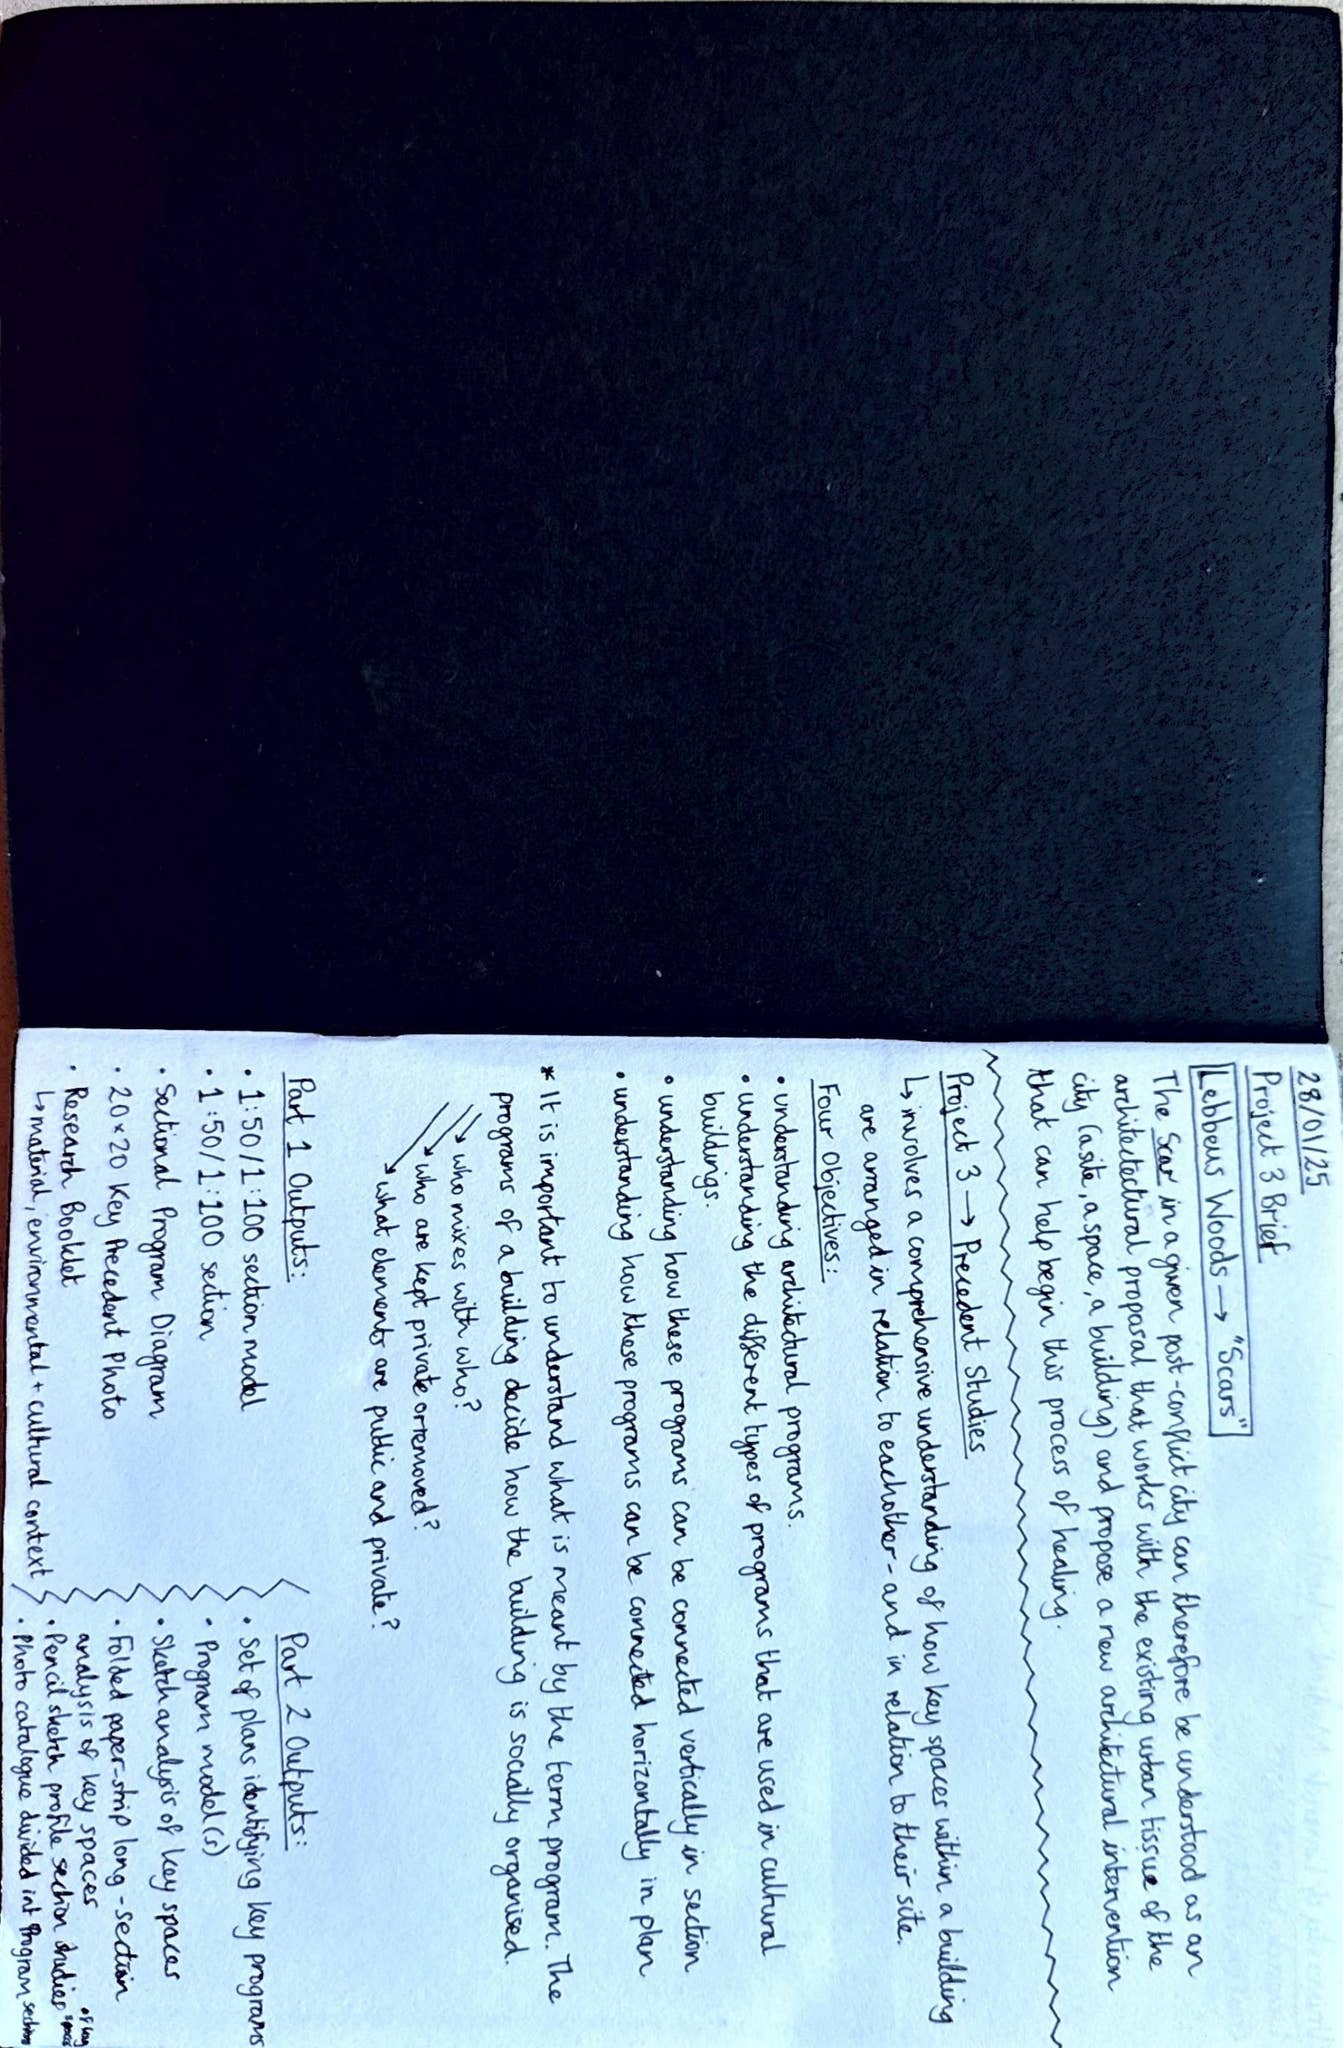 28/01/25
Project 3 Brief
Lebbeus Woods → "Scars"
The Scar in a given post-conflict city can therefore be understood as an
architectural proposal that works with the existing urban tissue of the
city (a site, a space, a building) and propose a new architectural intervention
that can help begin this process of healing.
Project 3 → Precedent Studies
↳ involves a comprehensive understanding of how key spaces within a building
are arranged in relation to eachother - and in relation to their site.
Four Objectives:
• understanding architectural programs.
• understanding the different types of programs that are used in cultural
buildings.
• understanding how these programs can be connected vertically in section
• understanding how these programs can be connected horizontally in plan
* It is important to understand what is meant by the term program. The
programs of a building decide how the building is socially organised.
↘ who mixes with who?
↘ who are kept private or removed?
↘ what elements are public and private?
Part 1 Outputs:
• 1:50/1:100 section model
• 1:50/1:100 section
• Sectional Program Diagram
• 20×20 Key Precedent Photo
• Research Booklet
↳ material, environmental + cultural context
Part 2 Outputs:
• Set of plans identifying key programs
• Program model(s)
• Sketch analysis of key spaces
• Folded paper-strip long-section
analysis of key spaces
• Pencil sketch profile section studies of key spaces
• Photo catalogue divided int Program sections